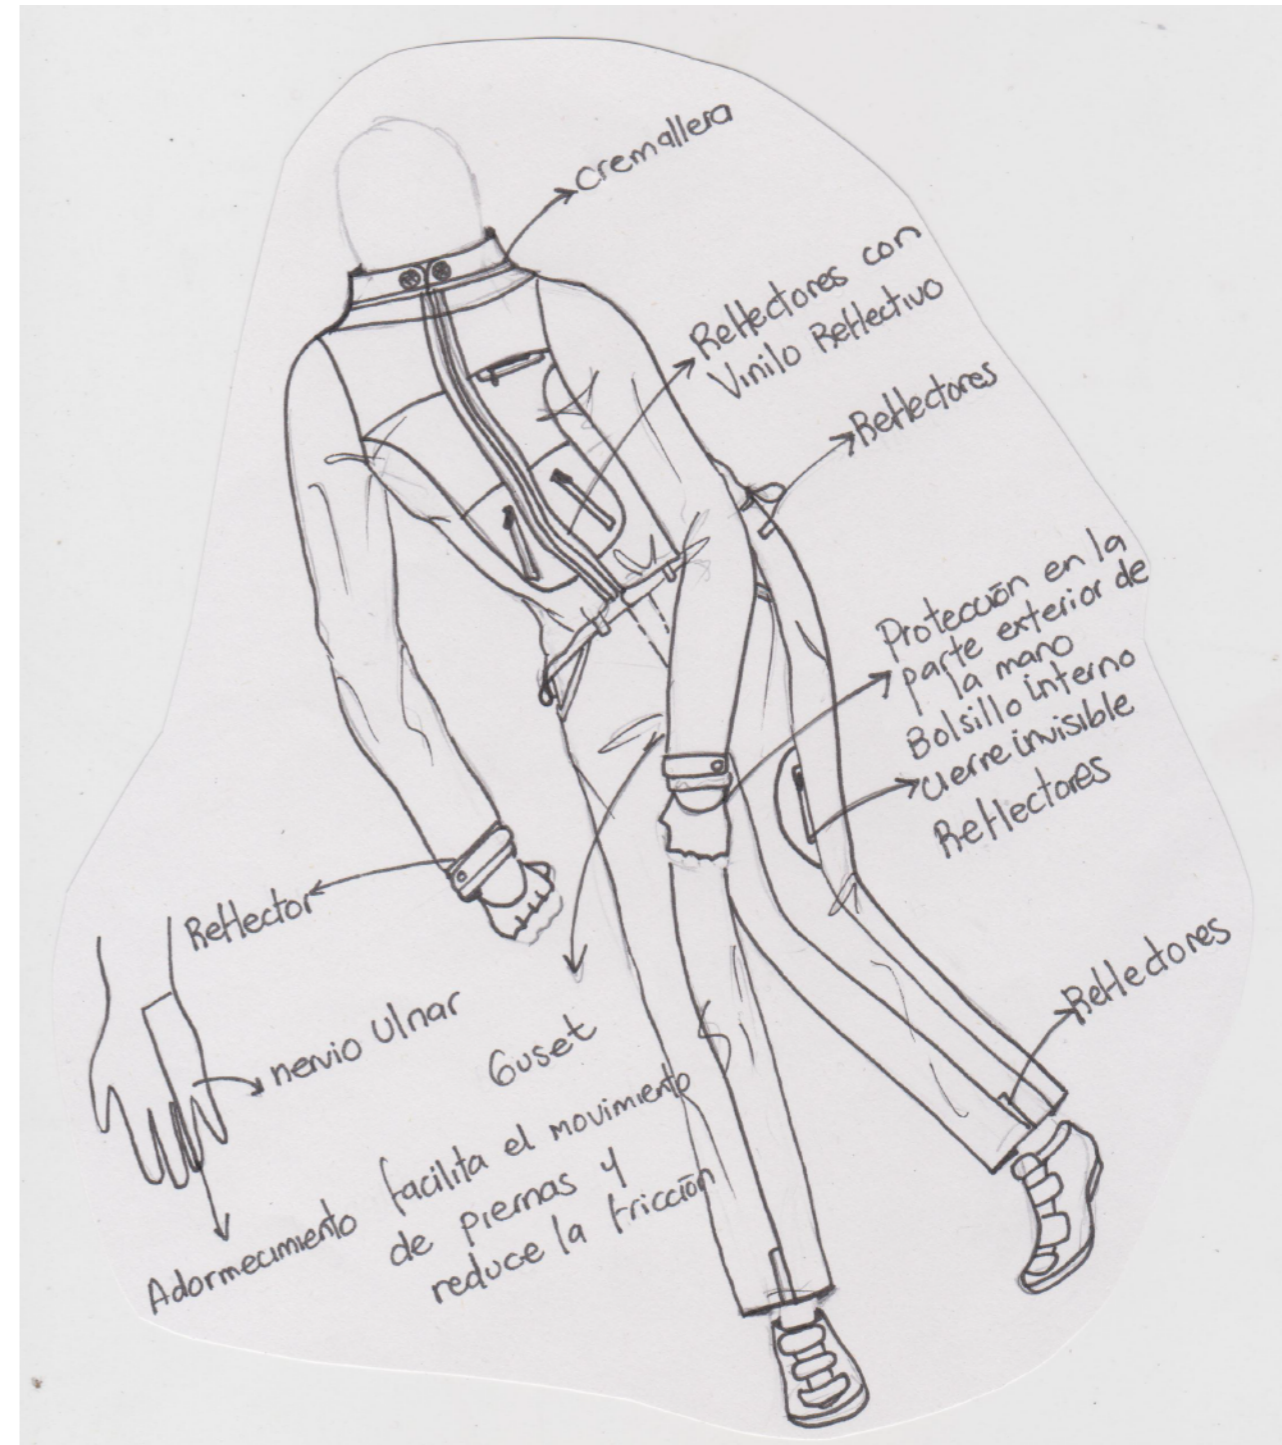 cremallera
Reflectores con
Vinilo Reflectivo
Reflectores
Protección en la
parte exterior de
la mano
Bolsillo interno
cierre invisible
Reflectores
Reflector
nervio Ulnar
Guset
Reflectores
Adormecimiento
facilita el movimiento
de piernas y
reduce la fricción